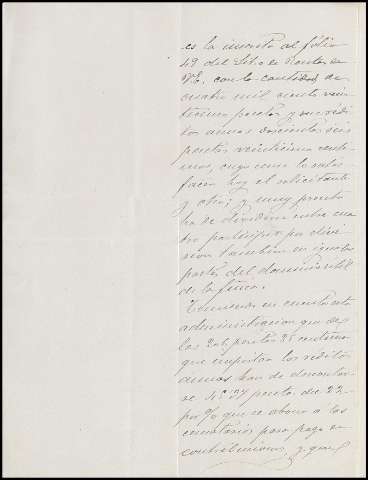 es la inscrita al fólio
49 del Libro de Rentas en
con la cantidad de
cuatro mil ciento vein
ticinco pesetas y
anuos doscientos seis
pesetas veinticinco cents
mos, cuyo censo le satis-
facen hoy el solicitante
y otro; y muy pronto
ha de dividirse entre cua
tro partícipes por divi
sion tambien en iguales
partes del dominio util
de la finca.
Teniendo en cuenta esta
administracion que de
las 206 pesetas 25 centimos
que importan los réditos
anuos han de descontar
se 45'37 pesetas del 22-
por % que se abona á los
censatarios para pago de
contribuciones, y que